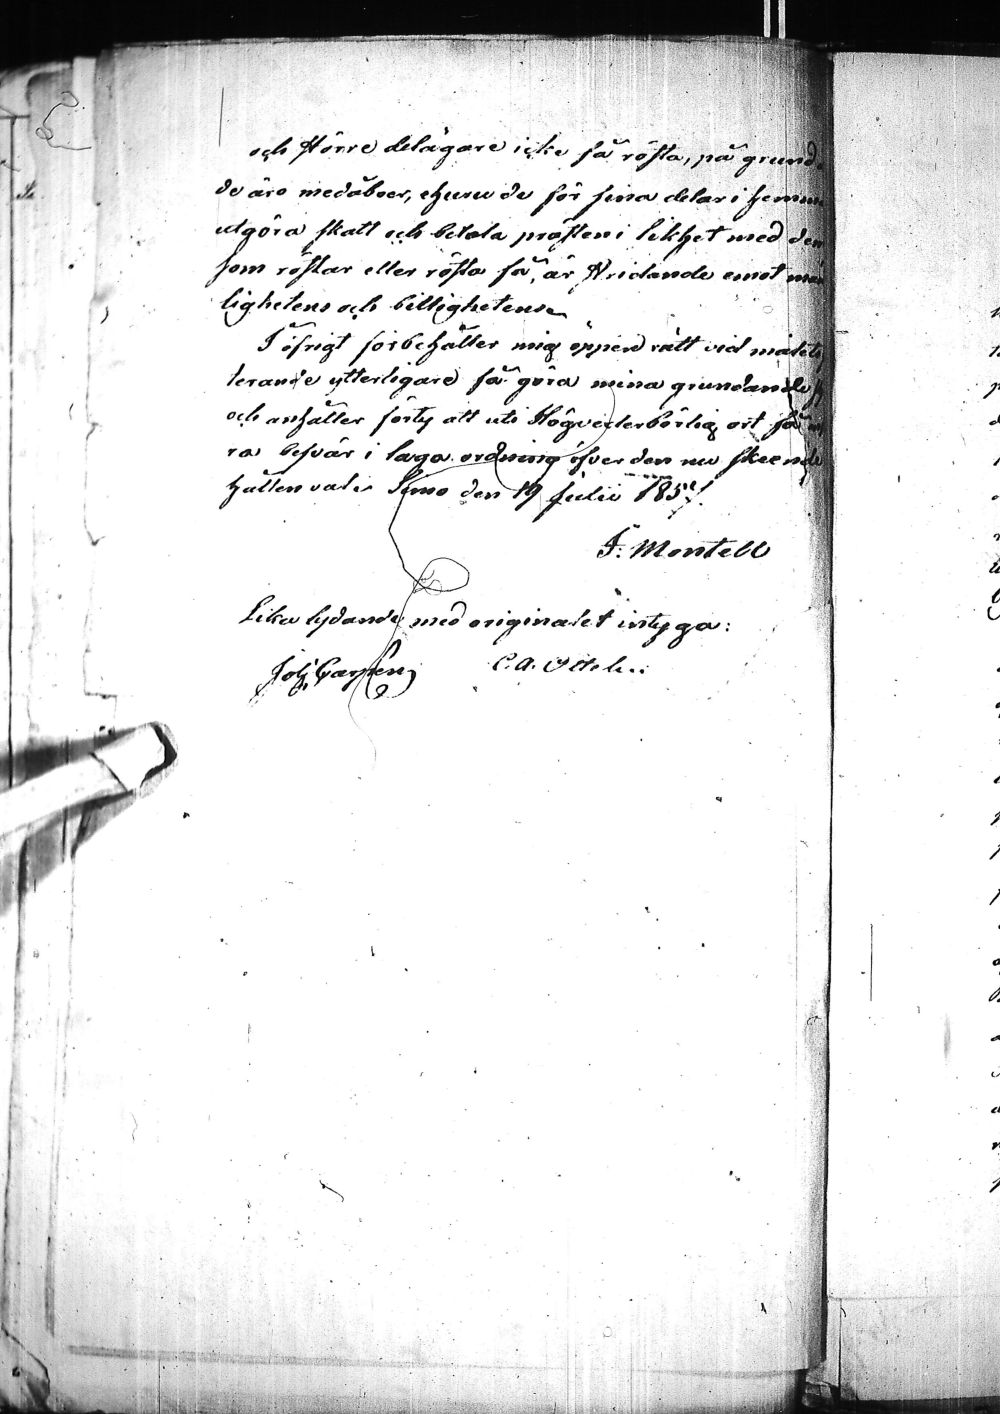 och större delägare icke få rösta, på grund
de äro medåboer, ehuru de för sina delar i hemm
utgöra skatt och betala prästen i likhet med den
som röstar eller rösta få, är stridande emot men
lighetens och billighetens.
I öfrigt förbehåller mig öppen rätt vid målets
terande ytterligare få göra mina grundande
och anhåller förty att uti Högvederbörlig ort få
ra besvär i laga ordning öfver den nu skeende
hållen val. Simo den 19 Julii 1857.
F. Montell
Lika lydande med originalet intyga:
Joh. C. A.